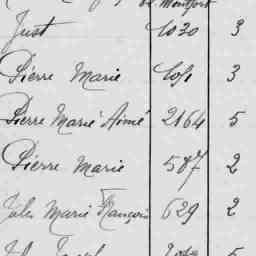 Montfort
Just 1030 3
Pierre Marie 3
Pierre Marie Aimé 2164 5
Pierre Marie 587 2
Jules Marie François 629 2
5